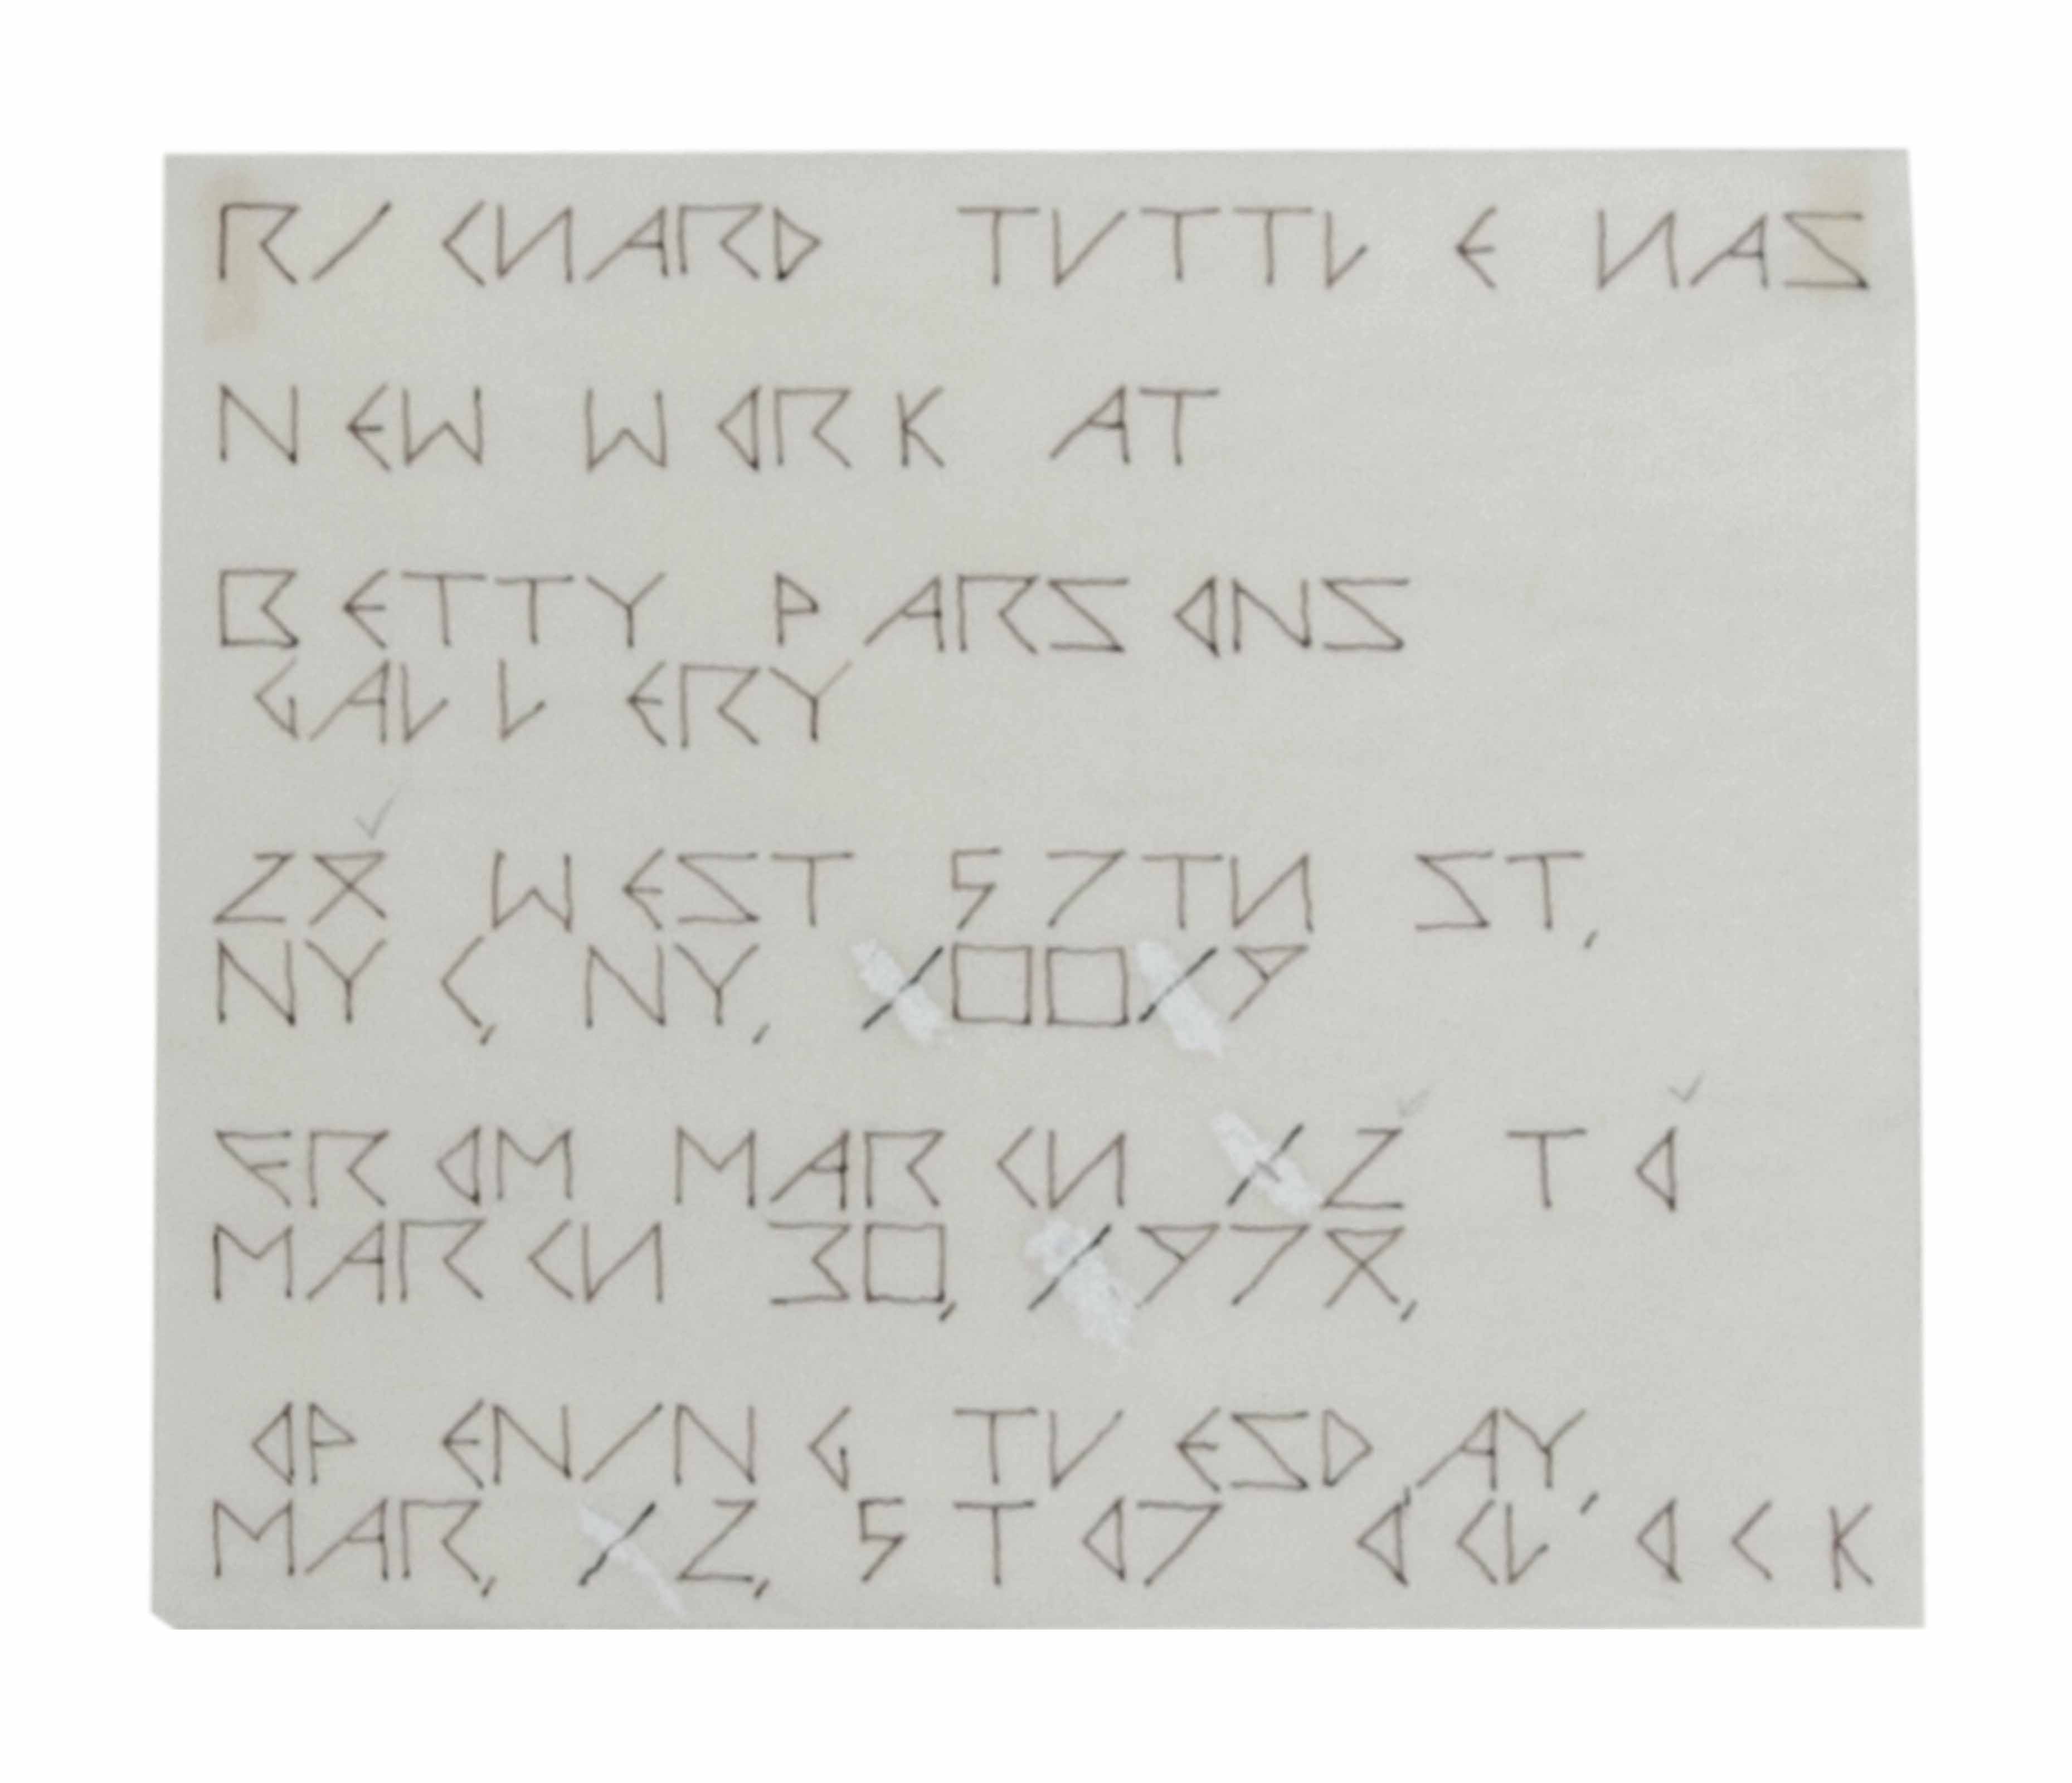 RICHARD TUTTLE HAS
NEW WORK AT
BETTY PARSONS
GALLERY
28 WEST 57TH ST,
NYC, NY, 10019
FROM MARCH 12 TO
MARCH 30, 1978,
OPENING TUESDAY,
MAR, 12, 5 TO 7 O'CLOCK